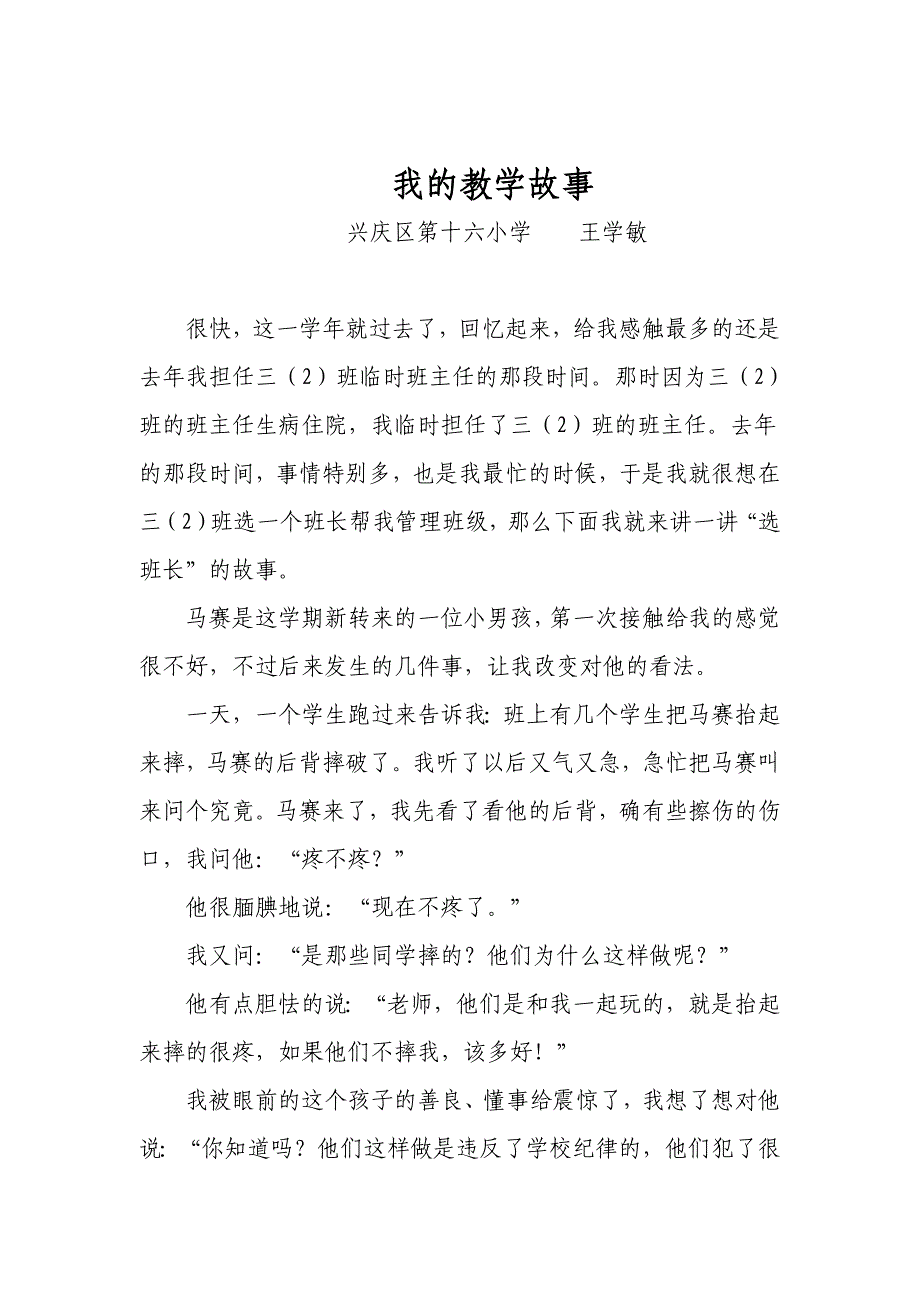 我的教学故事
兴庆区第十六小学 王学敏
很快，这一学年就过去了，回忆起来，给我感触最多的还是
去年我担任三（2）班临时班主任的那段时间。那时因为三（2）
班的班主任生病住院，我临时担任了三（2）班的班主任。去年
的那段时间，事情特别多，也是我最忙的时候，于是我就很想在
三（2）班选一个班长帮我管理班级，那么下面我就来讲一讲“选
班长”的故事。
马赛是这学期新转来的一位小男孩，第一次接触给我的感觉
很不好，不过后来发生的几件事，让我改变对他的看法。
一天，一个学生跑过来告诉我：班上有几个学生把马赛抬起
来摔，马赛的后背摔破了。我听了以后又气又急，急忙把马赛叫
来问个究竟。马赛来了，我先看了看他的后背，确有些擦伤的伤
口，我问他：“疼不疼？”
他很腼腆地说：“现在不疼了。”
我又问：“是那些同学摔的？他们为什么这样做呢？”
他有点胆怯的说：“老师，他们是和我一起玩的，就是抬起
来摔的很疼，如果他们不摔我，该多好！”
我被眼前的这个孩子的善良、懂事给震惊了，我想了想对他
说：“你知道吗？他们这样做是违反了学校纪律的，他们犯了很